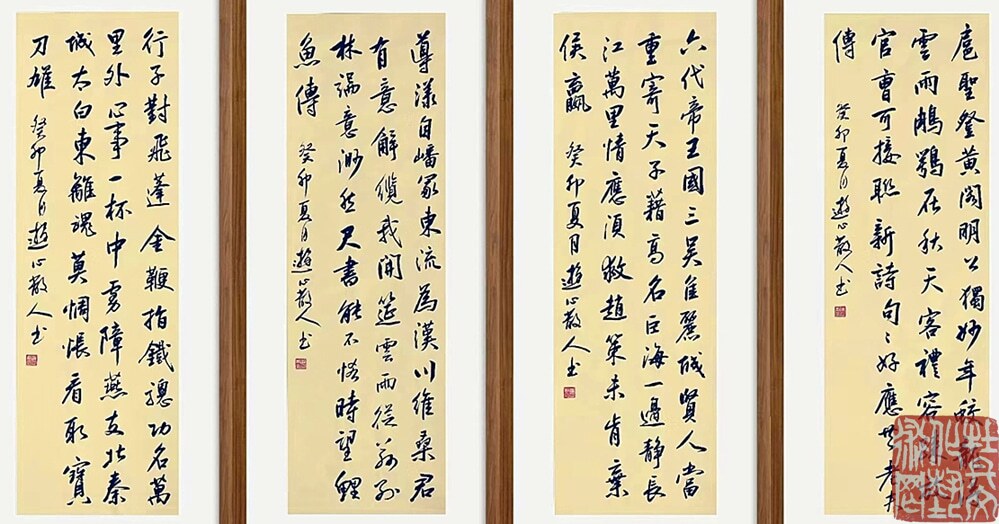 扈聖登黃閣明公獨妙年蛟龍得
雲雨鵰鶚在秋天客禮容疎放
官曹可接聯新詩句〻好應老夫
傳 癸卯夏月遊心散人书
六代帝王國三吴佳麗城賢人當
重寄天子藉高名巨海一邊静長
江萬里情應須救趙策未肯棄
侯贏 癸卯夏月遊心散人书
導漾自嶓冢東流為漢川維桑君
有意解纜我開筵雲雨從茲别
林端意渺然尺書能不悋時望鯉
魚傳 癸卯夏月遊心散人书
行子對飛蓬金鞭指鐵驄功名萬
里外心事一杯中虜障燕支北秦
城太白東離魂莫惆悵看取寶
刀雄 癸卯夏月遊心散人书